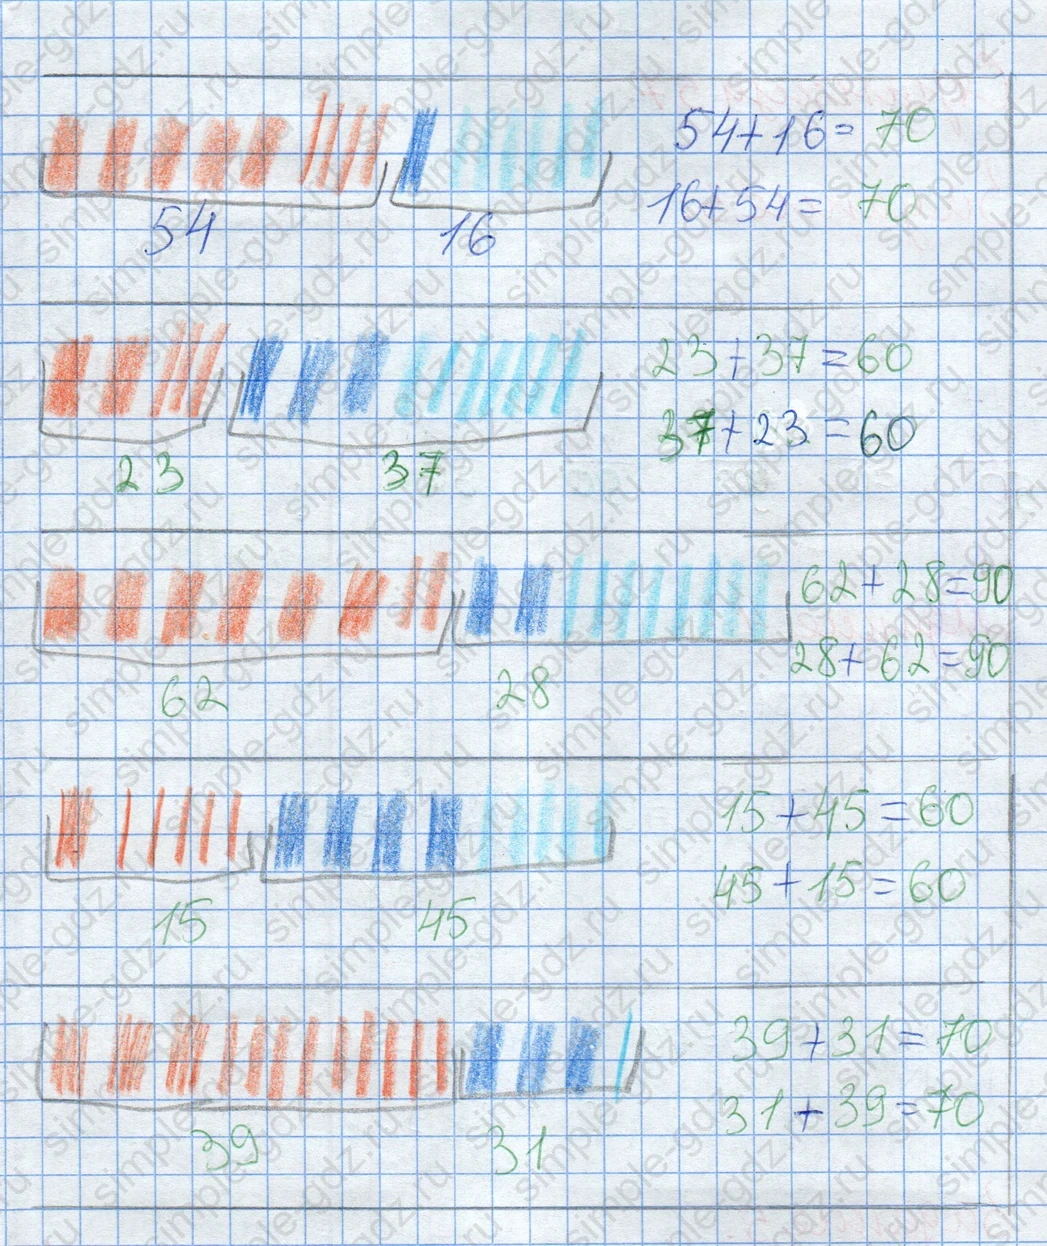 54+16=70
16+54=70
54 16
23+37=60
37+23=60
23 37
62+28=90
28+62=90
62 28
15+45=60
45+15=60
15 45
39+31=70
31+39=70
39 31
simple-gdz.ru